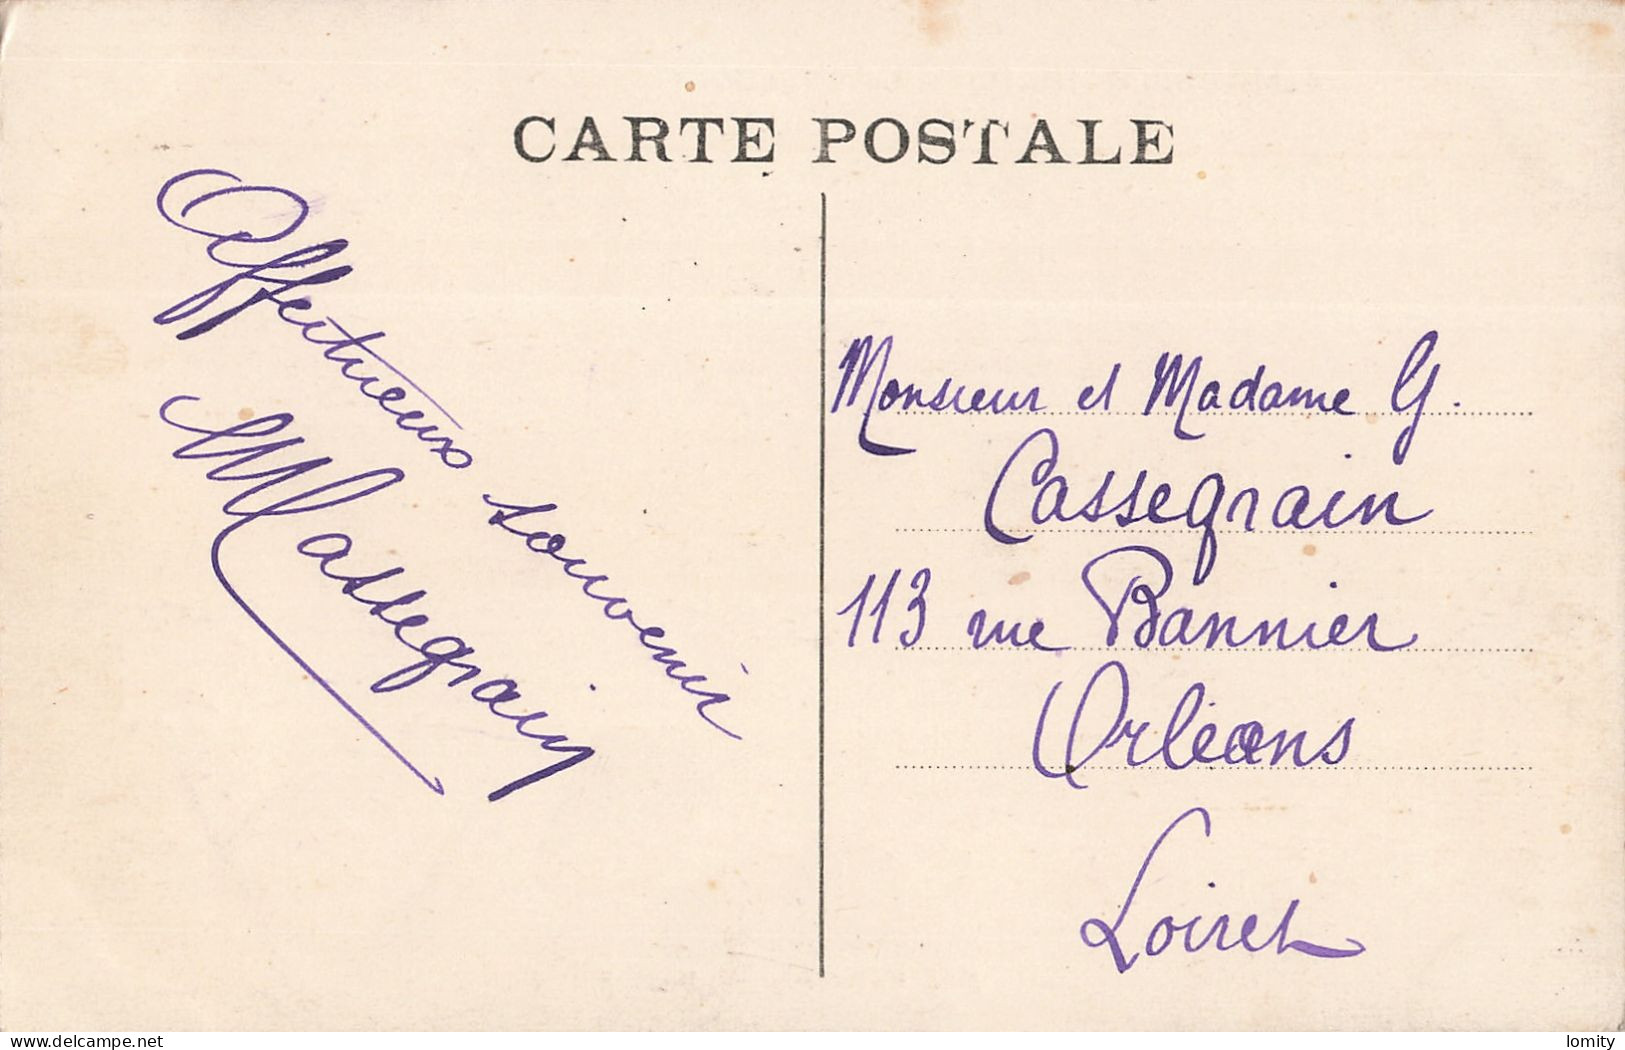 CARTE POSTALE
Affectueux souvenir
MCassegrain
Monsieur et Madame G.
Cassegrain
113 rue Bannier
Orléans
Loiret
lomity